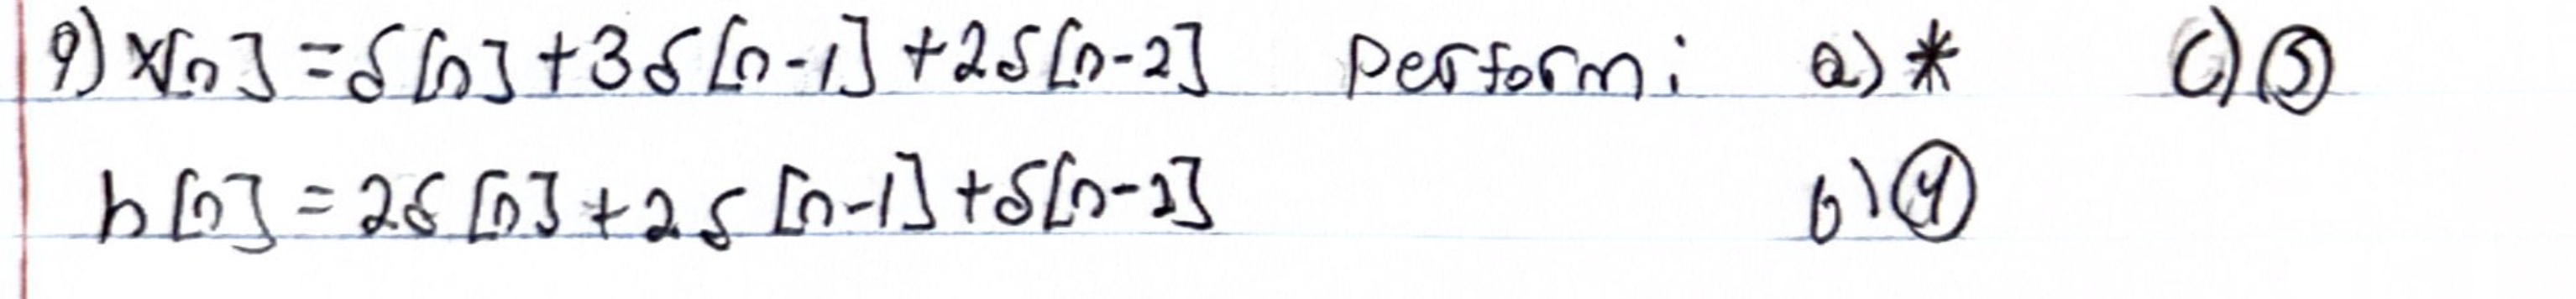 9) x[n] = δ[n] + 3δ[n-1] + 2δ[n-2] Perform: a) * c) ⑤
h[n] = 2δ[n] + 2δ[n-1] + δ[n-2] b) ④